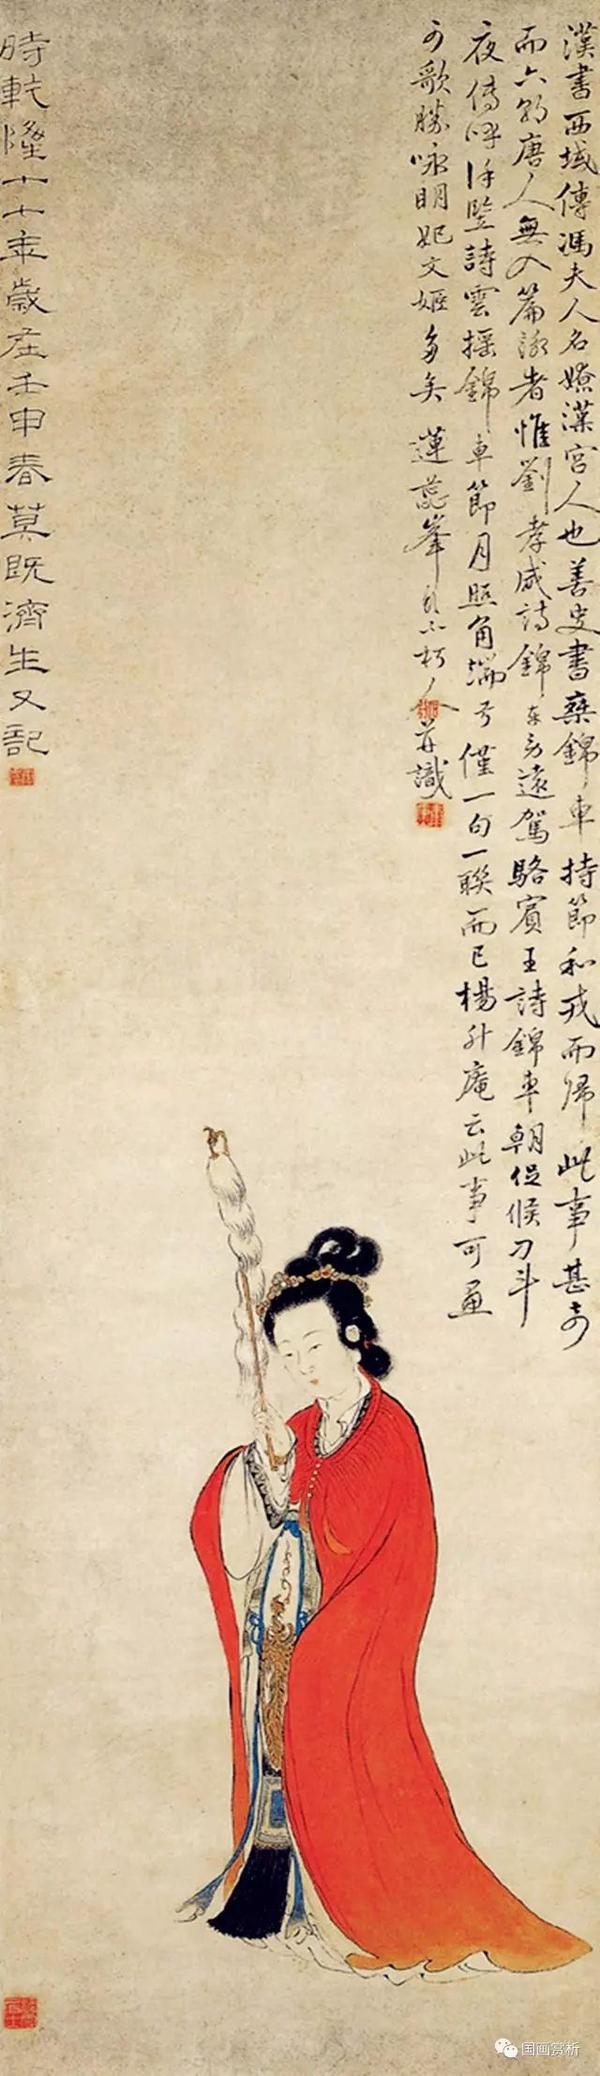 漢書西域傳馮夫人名嫽漢宮人也善史書乘錦車持節和戎而歸此事甚奇
而六朝唐人無入篇詠者惟劉孝威詩錦車勞遠駕駱賓王詩錦車朝促候刀斗
夜傳呼詩雲搖錦車節月照角端弓僅一句一聯而已楊升庵云此事可畫
可歌勝咏明妃文姬多矣蓮蕊峯頭不朽人并識
時乾隆十七年歲在壬申春莫既濟生又記
国画赏析